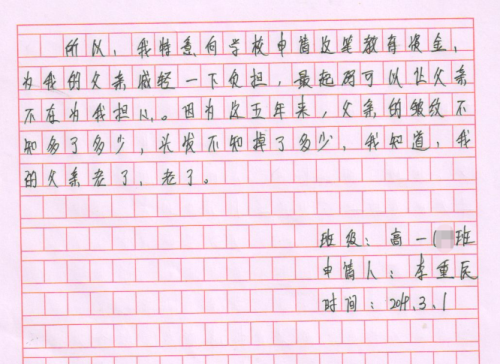 所以，我特意向学校申请这笔教育资金，
为我的父亲减轻一下负担，最起码可以让父亲
不在为我担心。因为这五年来，父亲的皱纹不
知多了多少，头发不知掉了多少，我知道，我
的父亲老了，老了。
班级：高一（班
申请人：李重辰
时间：2019.3.1